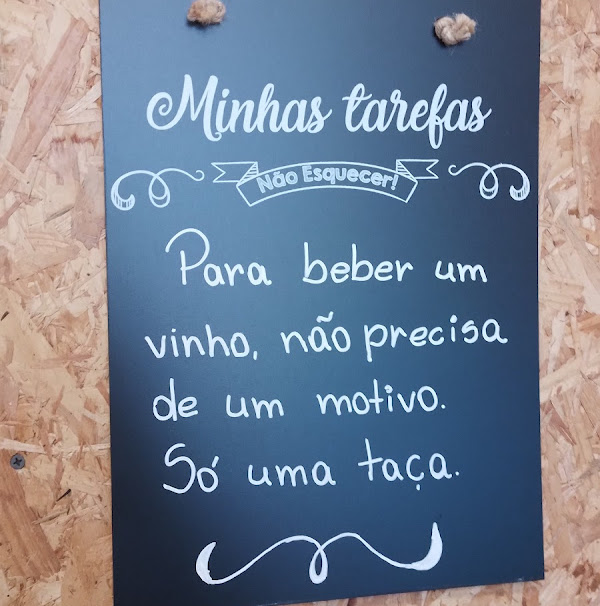 Minhas tarefas
Não Esquecer!
Para beber um
vinho, não precisa
de um motivo.
Só uma taça.